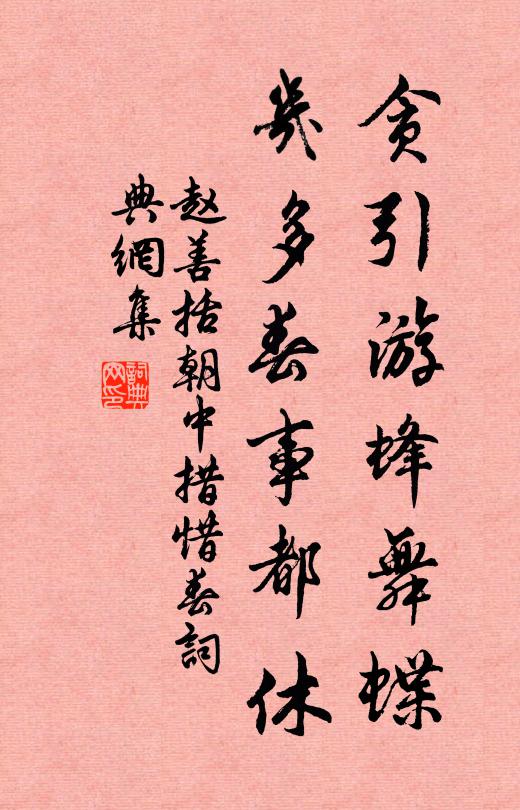 贪引游蜂舞蝶
几多春事都休
赵善括朝中措惜春詞
典網集
詞典
网印